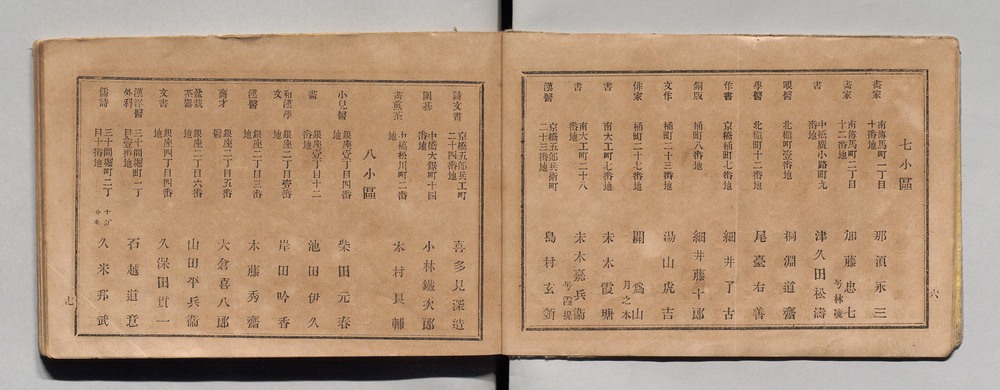 七小區
書家 南傳馬町一丁目十番地 那須永三
畫家 南傳馬町二丁目十二番地 加藤忠七 号林
書 中橋廣小路町九番地 津久田松濤
眼醫 北槇町壹番地 桐淵道齋
學醫 北槇町十二番地 尾臺右善
作書 京橋桶町七番地 細井了古
銅版 桶町八番地 細井藤十郎
文作 桶町二十三番地 湯山虎吉
俳家 桶町二十七番地 關爲山 月之本
書 南大工町七番地 未木霞塘
書 南大工町二十八番地 未木嘉兵衞 号霞堤
漢醫 京橋五郎兵衛町二十三番地 島村玄領
六
詩文書 京橋五郎兵エ町二十四番地 喜多見深造
圍碁 中橋大鋸町十四番地 小林鐵次郎
書煎茶 中橋松川町二番地 木村良輔
八小區
小兒醫 銀座壹丁目四番地 柴田元春
書 銀座壹丁目十二番地 池田伊久
和漢學文 銀座二丁目壹番地 岸田吟香
漢醫 銀座二丁目三番地 木藤秀齋
商才 銀座二丁目五番 大倉喜八郎
盆栽茶器 銀座二丁目六番地 山田平兵衞
文書 銀座四丁目四番地 久保田貫一
漢洋醫外科 三十間堀町一丁目壹番地 石越道意
儒詩 三十間堀町二丁目十番地 久米邦武
七